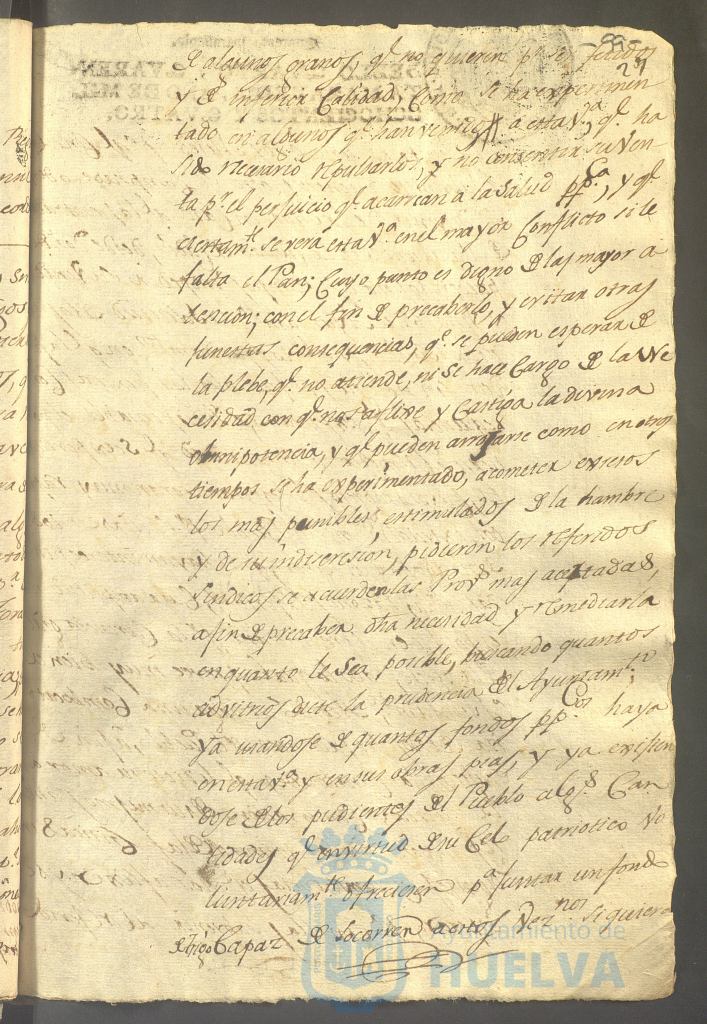 -99-
27
de algunos granos, q.e no quieren p.r ser
y de inferior Calidad, Como se ha experimen
tado en algunos q.e han venido a esta V.a, q.e ha
sido necesario repulsarlos, y no consentir su ven
ta p.r el perjuicio q.e acarrean a la Salud pp.ca, y q.e
ciertam.te se vera esta V.a en el mayor Conflicto si le
falta el Pan; Cuyo punto es digno de la mayor a
tencion; con el fin de precaberlo, y evitar otras
funestas consequencias, q.e se pueden esperar de
la plebe, q.e no atiende, ni se hace Cargo de la Ne
cesidad con q.e nos aflixe y Castiga la divina
omnipotencia, y q.e pueden arrojarse como en otros
tiempos se ha experimentado, a cometer excesos
los mas punibles estimulados de la hambre
y de su indiscresion, pidieron los referidos
Sindicos se acuerden las Prov.s mas aceptadas,
a fin de precaber dha necesidad y remediarla
en quanto le sea posible, buscando quantos
advitrios dicte la prudencia del Ayuntam.to
ya usandose de quantos fondos pp.cos haya
en esta V.a y en sus obras pias, y ya
dose de los pudientes del Pueblo a los Can
tidades q.e en virtud de su Celo patriotico vo
luntariam.te ofrecieren p.a juntar un fondo
de trigo Capaz de socorrer a estos Vez.nos siquiera
Ayuntamiento de
HUELVA